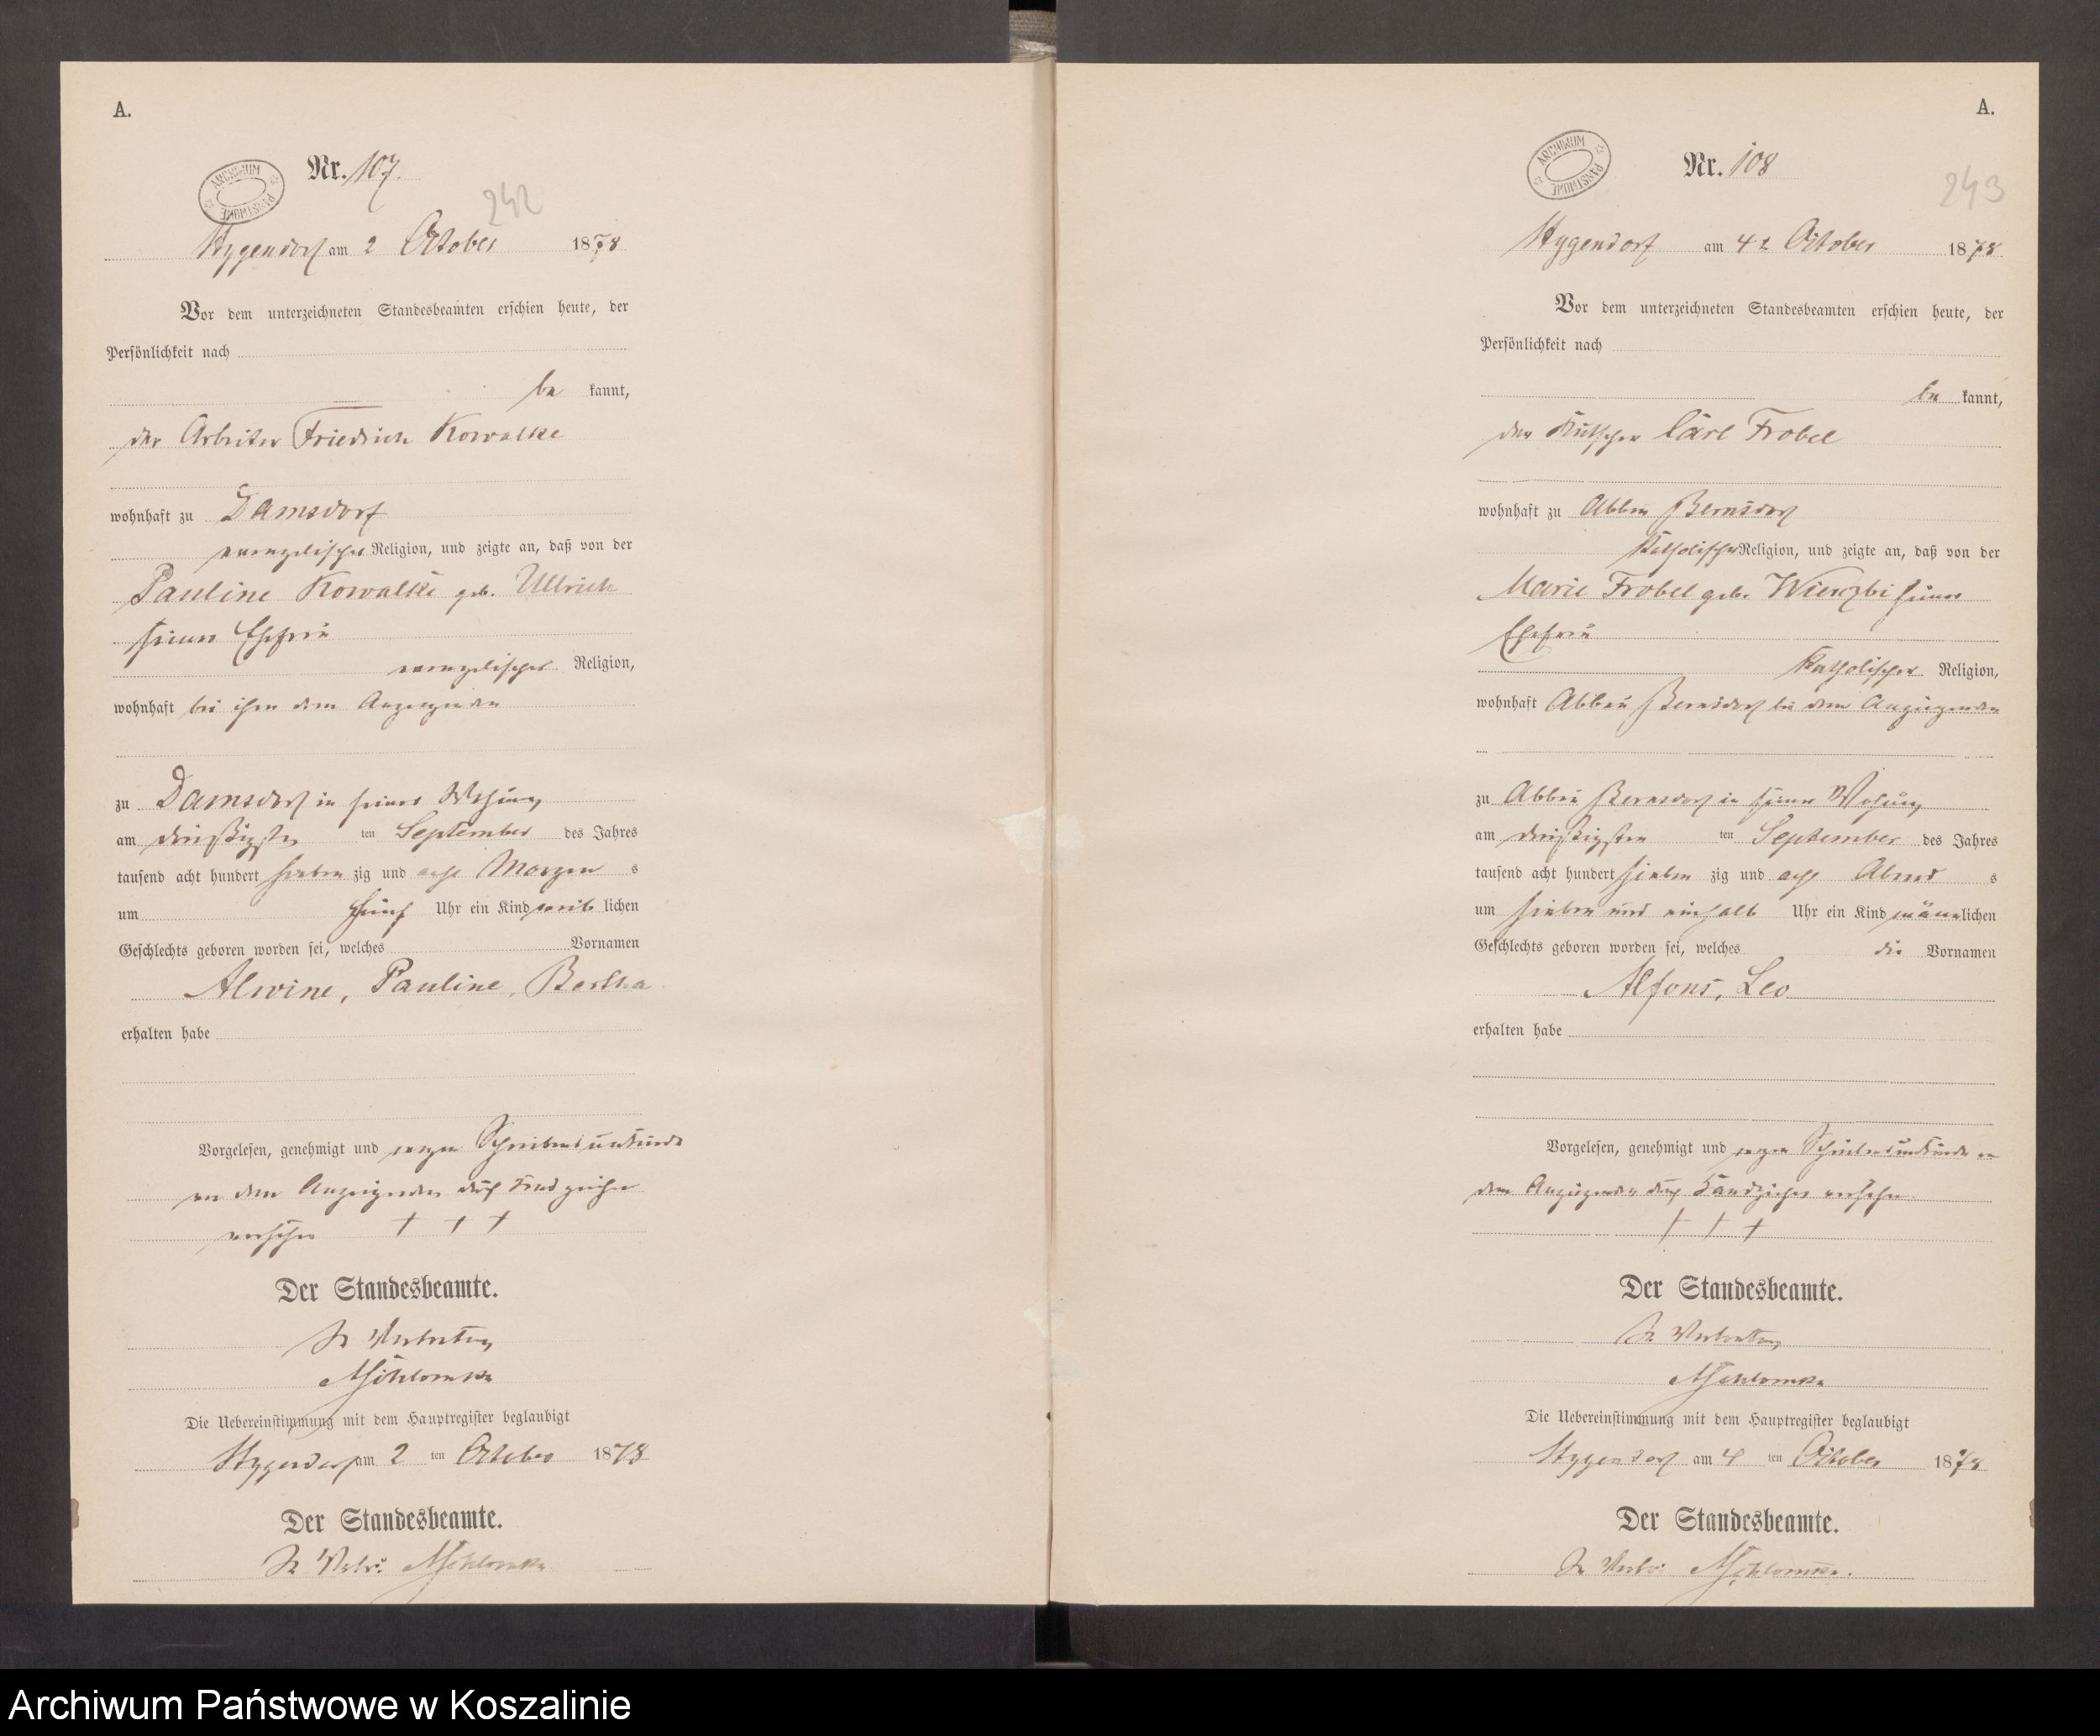 A.
Nr. 107.
242
ARCHIWUM PAŃSTWOWE
Stygendorf am 2 October 1878
Vor dem unterzeichneten Standesbeamten erschien heute, der
Persönlichkeit nach
be kannt,
der Arbeiter Friedrich Kowalke
wohnhaft zu Damsdorf
evangelischer Religion, und zeigte an, daß von der
Pauline Kowalke geb. Ullrich
seiner Ehefrau
evangelischer Religion,
wohnhaft bei ihm dem Anzeigenden
zu Damsdorf in seiner Wohung
am dreißigsten ten September des Jahres
tausend acht hundert sieben zig und acht Morgen s
um fünf Uhr ein Kind weib lichen
Geschlechts geboren worden sei, welches Vornamen
Alwine, Pauline, Bertha
erhalten habe
Vorgelesen, genehmigt und wegen Schreibensunkunde
von dem Anzeigenden durch Handzeichen
versehen + + +
Der Standesbeamte.
In Vertretung
Die Uebereinstimmung mit dem Hauptregister beglaubigt
Stygendorf am 2 ten October 1878
Der Standesbeamte.
In Vertr:
A.
Nr. 108
243
ARCHIWUM PAŃSTWOWE
Stygendorf am 4 t October 1878
Vor dem unterzeichneten Standesbeamten erschien heute, der
Persönlichkeit nach
be kannt,
der Kutscher Carl Frobel
wohnhaft zu Abbau Bernsdorf
Katholischer Religion, und zeigte an, daß von der
Marie Frobel geb. Wierzbi seiner
Ehefrau
Katholischer Religion,
wohnhaft Abbau Bernsdorf bei dem Anzeigenden
zu Abbau Bernsdorf in seiner Wohung
am dreißigsten ten September des Jahres
tausend acht hundert sieben zig und acht Abend s
um sieben und einhalb Uhr ein Kind männlichen
Geschlechts geboren worden sei, welches die Vornamen
Alfons, Leo
erhalten habe
Vorgelesen, genehmigt und wegen Schreibensunkunde von
dem Anzeigenden durch Handzeichen versehen.
+ + +
Der Standesbeamte.
In Vertretung
Die Uebereinstimmung mit dem Hauptregister beglaubigt
Stygendorf am 4 ten October 1878
Der Standesbeamte.
In Vertr:
Archiwum Państwowe w Koszalinie